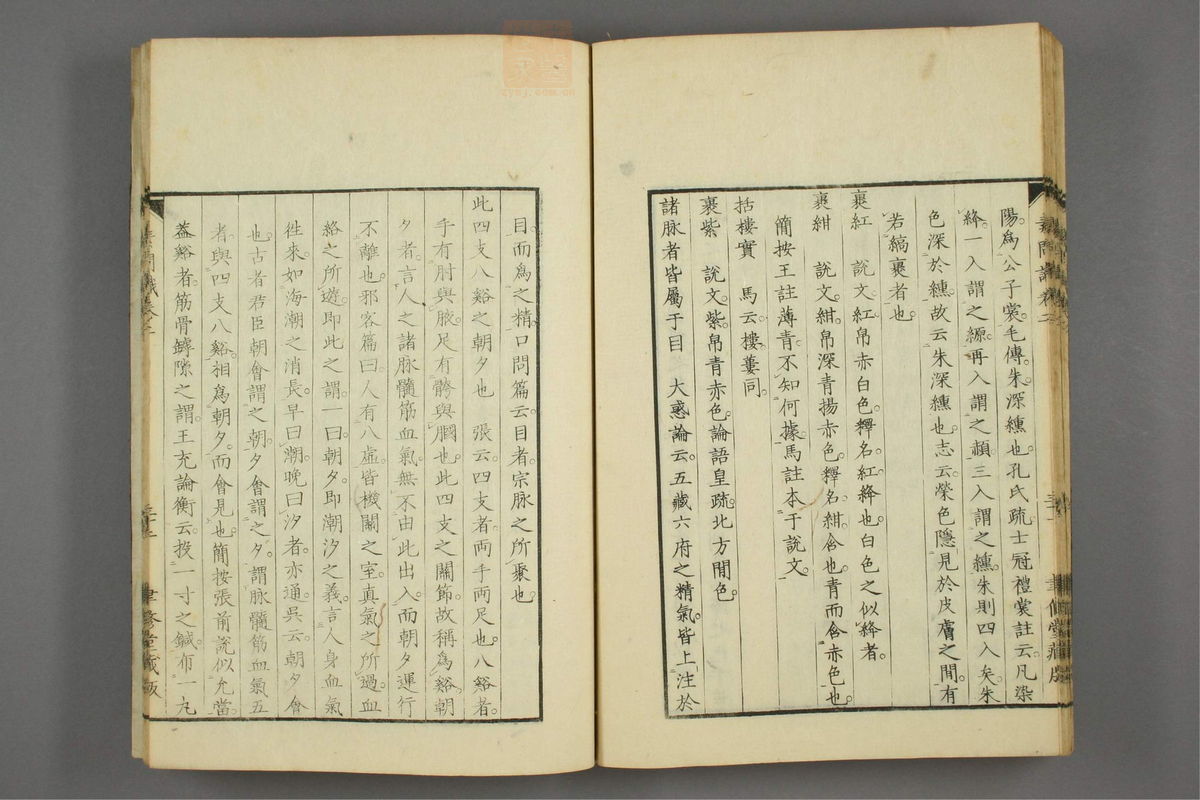 陽爲公子裳毛傳朱深纁也孔氏疏士冠禮裳註云凡染
絳一入謂之縓再入謂之赬三入謂之纁朱則四入矣朱
色深於纁故云朱深纁也志云榮色隱見於皮膚之間有
若縞裹者也
裹紅　說文紅帛赤白色釋名紅絳也白色之似絳者
裹紺　說文紺帛深青揚赤色釋名紺含也青而含赤色也
簡按王註薄青不知何據馬註本于說文
括樓實　馬云樓蔞同
裹紫　說文紫帛青赤色論語皇疏北方間色
諸脉者皆屬于目　大惑論云五藏六府之精氣皆上注於
目而爲之精口問篇云目者宗脉之所聚也
此四支八谿之朝夕也　張云四支者兩手兩足也八谿者
手有肘與腋足有骻與膕也此四支之關節故稱爲谿朝
夕者言人之諸脉髓筋血氣無不由此出入而朝夕運行
不離也邪客篇曰人有八虛皆機關之室真氣之所過血
絡之所遊即此之謂一曰朝夕即潮汐之義言人身血氣
徃來如海潮之消長早曰潮晚曰汐者亦通吳云朝夕會
也古者君臣朝會謂之朝夕會謂之夕謂脉髓筋血氣五
者與四支八谿相爲朝夕而會見也簡按張前說似允當
蓋谿者筋骨罅隙之謂王充論衡云投一寸之鍼布一丸
素問識卷之二
聿修堂藏版
cysj.com.cn